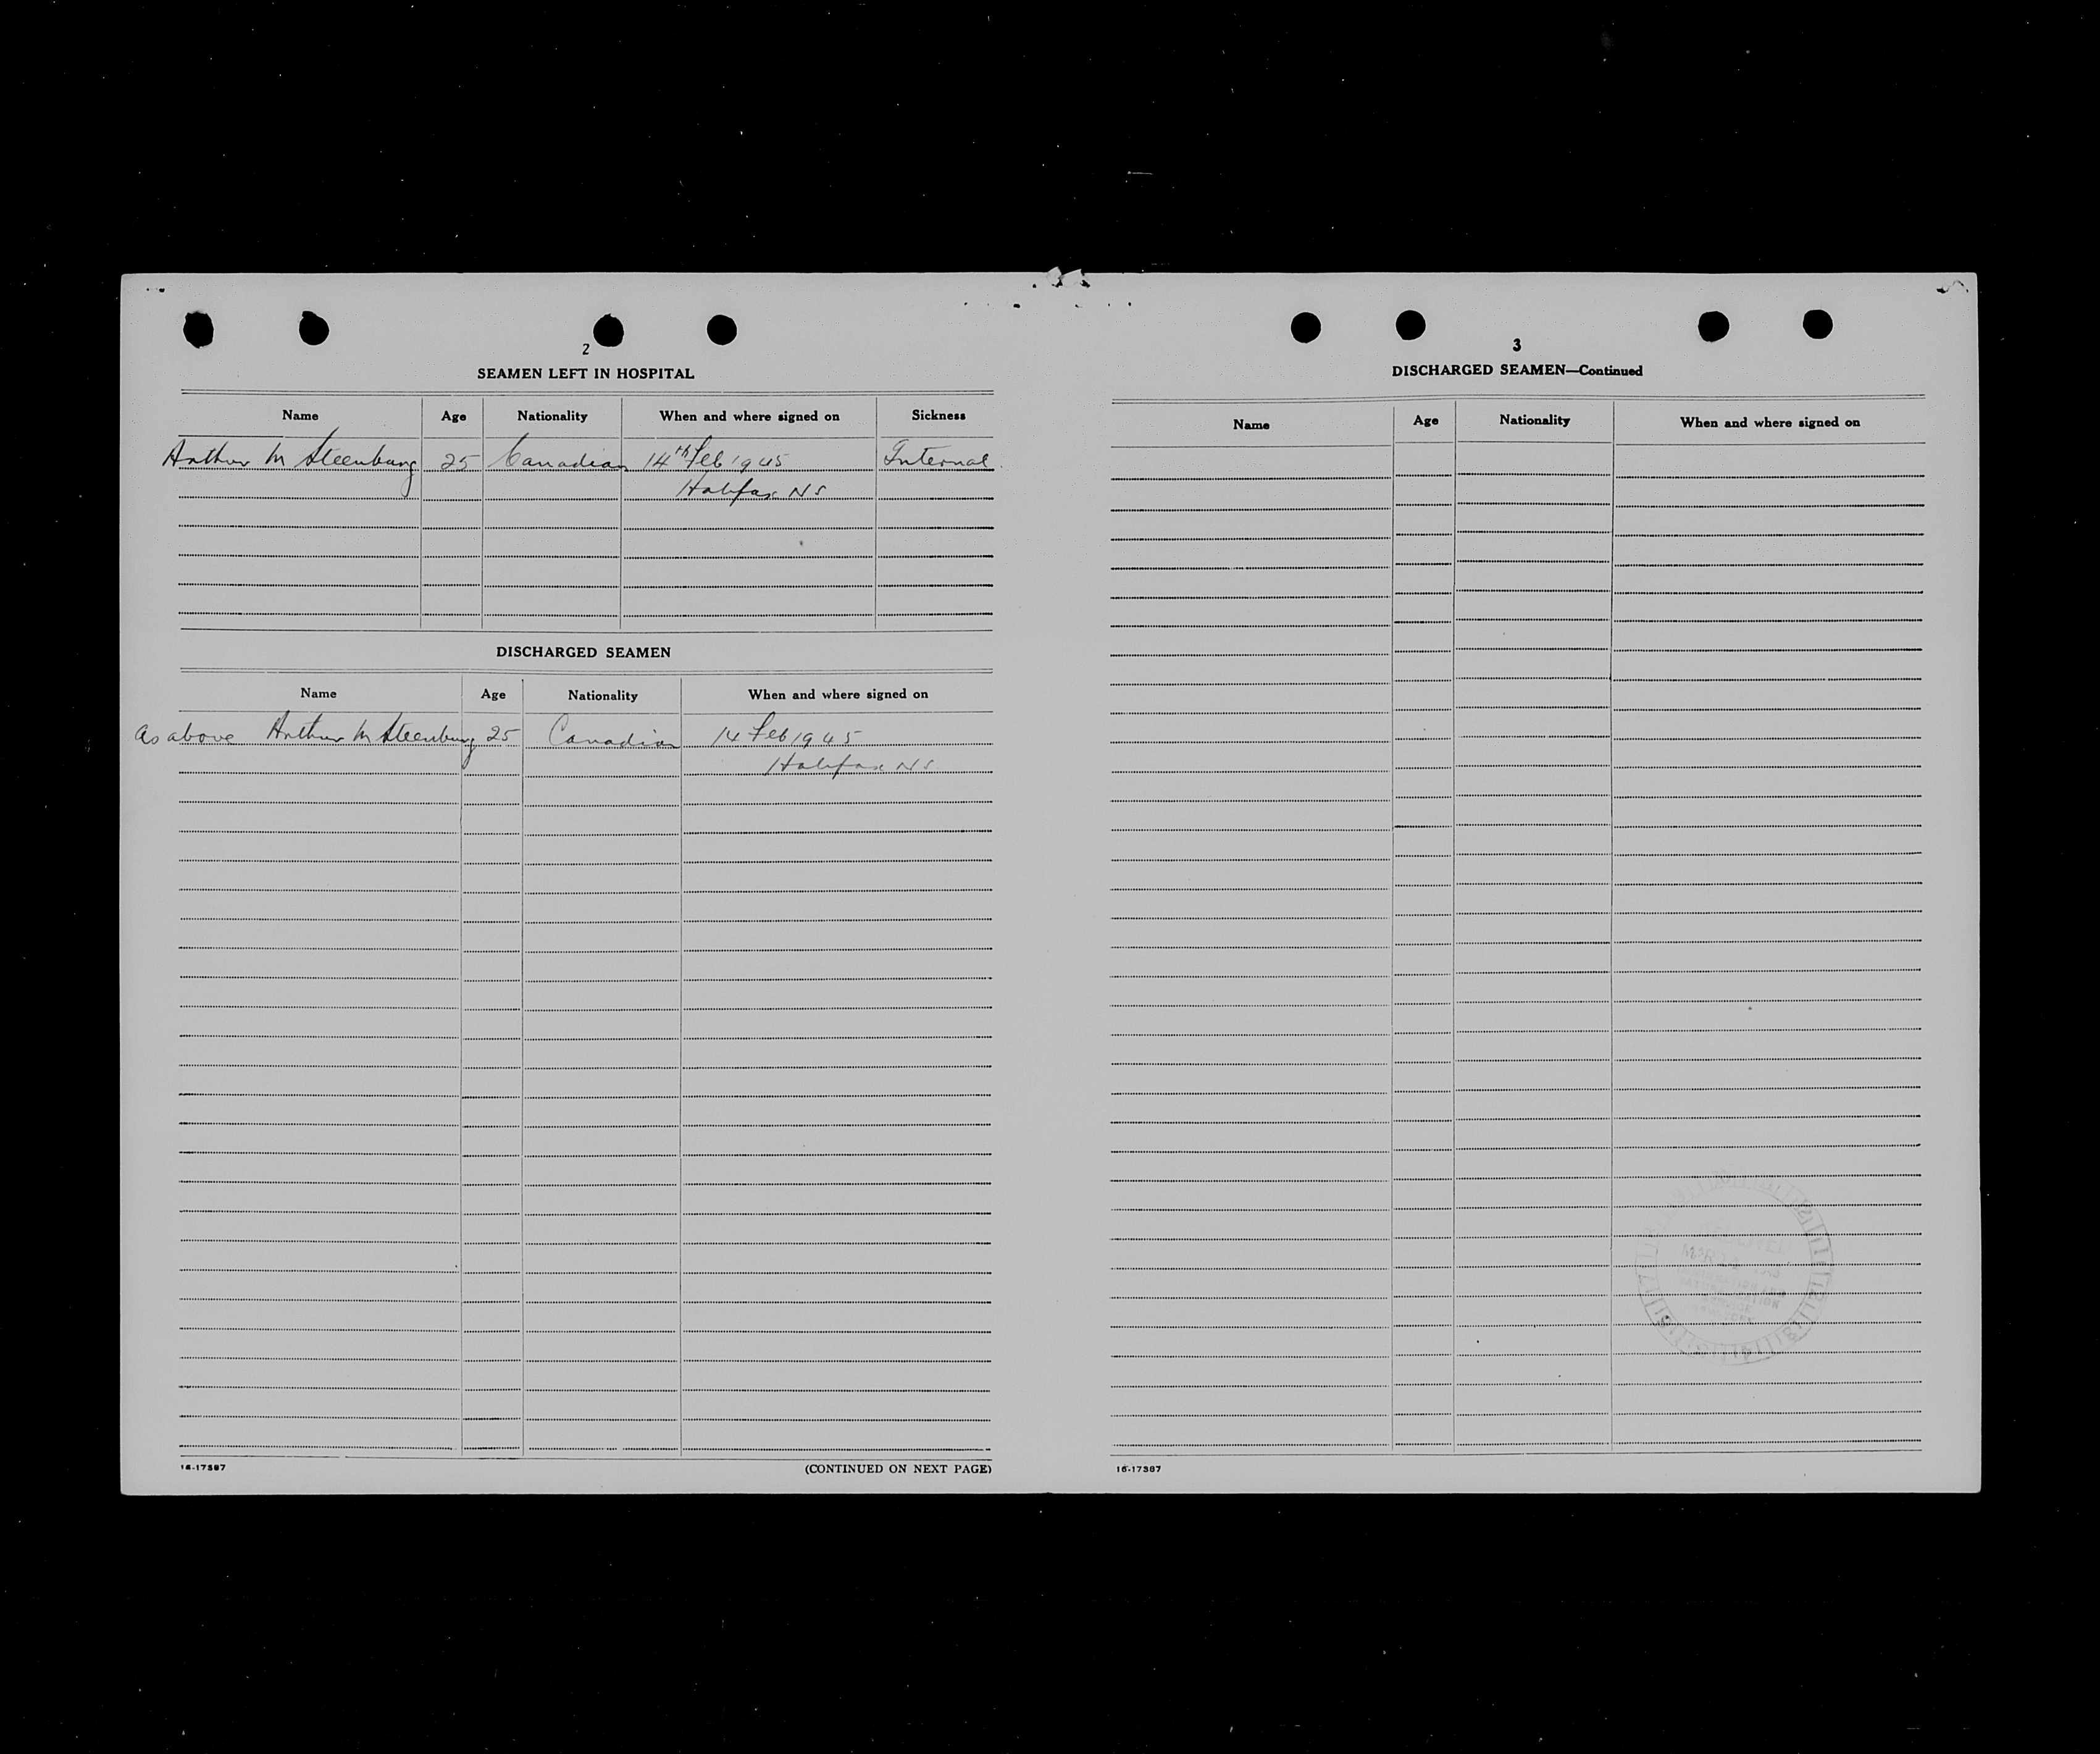 2
SEAMEN LEFT IN HOSPITAL
Name Age Nationality When and where signed on Sickness
Arthur M Steenburg 25 Canadian 14th Feb 1945 Internal
Halifax NS
DISCHARGED SEAMEN
Name Age Nationality When and where signed on
As above Arthur M Steenburg 25 Canadian 14 Feb 1945
Halifax NS
16-17387
(CONTINUED ON NEXT PAGE)
3
DISCHARGED SEAMEN—Continued
Name Age Nationality When and where signed on
16-17387